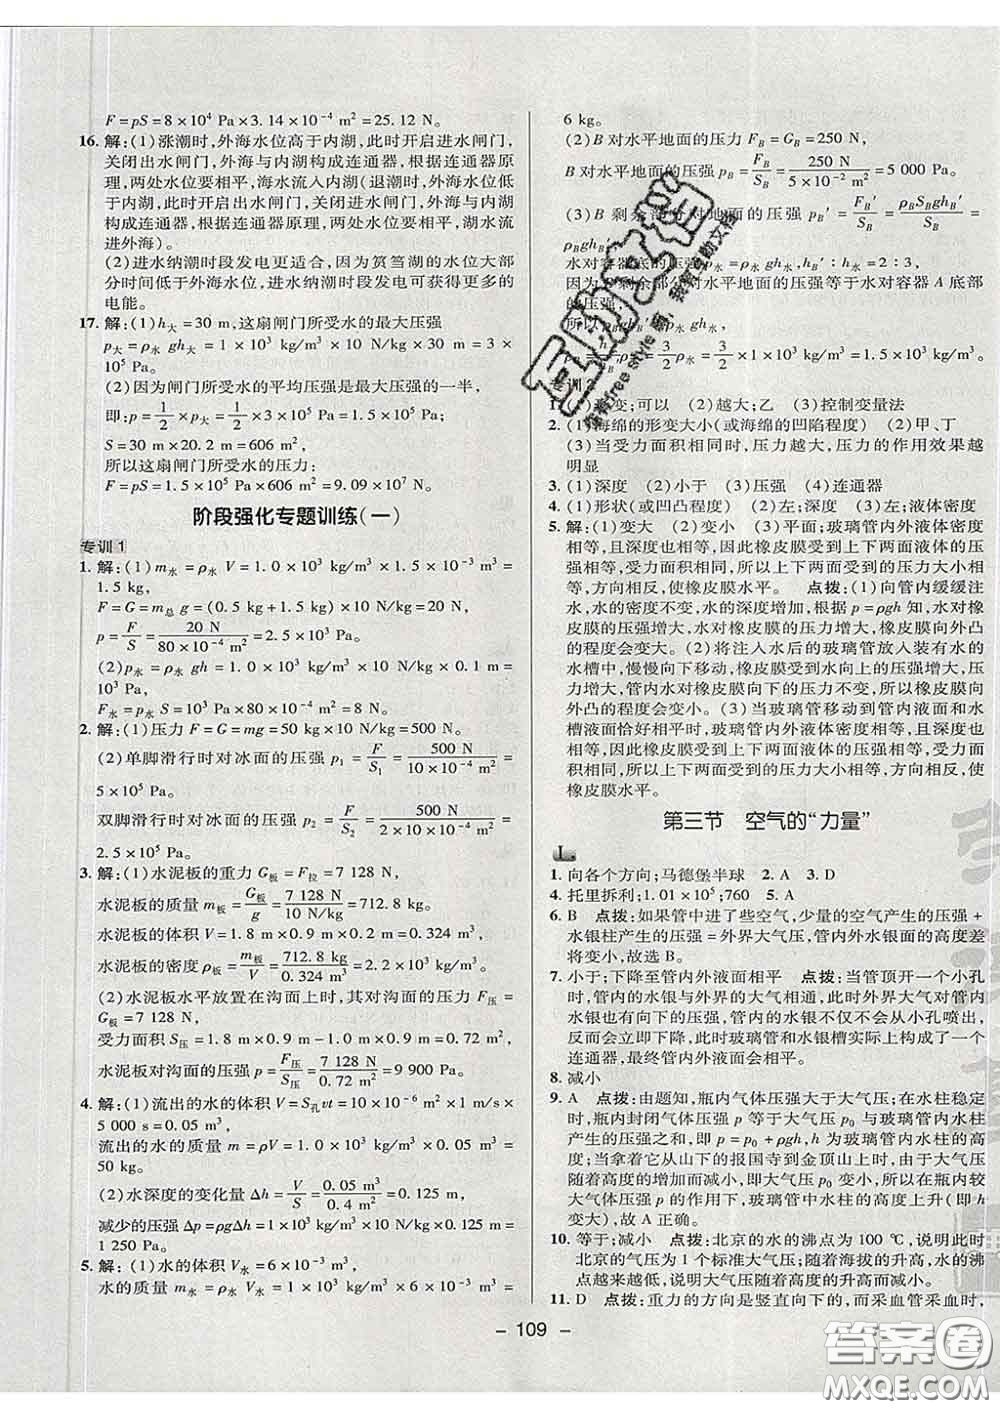 F=pS=8×10⁴ Pa×3.14×10⁻⁴ m²=25.12 N。
16. 解:(1)涨潮时,外海水位高于内湖,此时开启进水闸门,
关闭出水闸门,外海与内湖构成连通器,根据连通器原
理,两处水位要相平,海水流入内湖(退潮时,外海水位低
于内湖,此时开启出水闸门,关闭进水闸门,外海与内湖
构成连通器,根据连通器原理,两处水位要相平,湖水流
进外海)。
(2)进水纳潮时段发电更适合,因为筼筜湖的水位大部
分时间低于外海水位,进水纳潮时段发电可获得更多的
电能。
17. 解:(1)h大=30 m,这扇闸门所受水的最大压强
p大=ρ水 gh大=1×10³ kg/m³×10 N/kg×30 m=3×
10⁵Pa。
(2)因为闸门所受水的平均压强是最大压强的一半,
即:p=1/2 p大=1/2×3×10⁵ Pa=1.5×10⁵ Pa,
S=30 m×20.2 m=606 m²,
所以这扇闸门所受水的压力:
F=pS=1.5×10⁵ Pa×606 m²=9.09×10⁷ N。
阶段强化专题训练(一)
专训1
1. 解:(1)m水=ρ水 V=1.0×10³ kg/m³×1.5×10⁻³ m³=
1.5 kg,
F=G=m总 g=(0.5 kg+1.5 kg)×10 N/kg=20 N,
p=F/S=20 N/(80×10⁻⁴ m²)=2.5×10³ Pa。
(2)p水=ρ水 gh=1.0×10³ kg/m³×10 N/kg×0.1 m=
10³ Pa,
F水=p水 S=10³ Pa×80×10⁻⁴ m²=8 N。
2. 解:(1)压力 F=G=mg=50 kg×10 N/kg=500 N。
(2)单脚滑行时对冰面的压强 p₁=F/S₁=500 N/(10×10⁻⁴ m²)=
5×10⁵ Pa。
双脚滑行时对冰面的压强 p₂=F/S₂=500 N/(2×10×10⁻⁴ m²)
=2.5×10⁵ Pa。
3. 解:(1)水泥板的重力 G板=F拉=7 128 N,
水泥板的质量 m板=G板/g=7 128 N/(10 N/kg)=712.8 kg。
水泥板的体积 V=1.8 m×0.9 m×0.2 m=0.324 m³,
水泥板的密度 ρ板=m板/V=712.8 kg/0.324 m³=2.2×10³ kg/m³。
(2)水泥板水平放置在沟面上时,其对沟面的压力 F压=
G板=7 128 N,
受力面积 S压=1.8 m×0.9 m-1.0 m×0.9 m=0.72 m²,
水泥板对沟面的压强 p=F压/S压=7 128 N/0.72 m²=9 900 Pa。
4. 解:(1)流出的水的体积 V=S孔vt=10×10⁻⁶ m²×1 m/s×
5 000 s=0.05 m³,
流出的水的质量 m=ρV=1×10³ kg/m³×0.05 m³=
50 kg。
(2)水深度的变化量 Δh=V/S=0.05 m³/0.4 m²=0.125 m,
减少的压强 Δp=ρgΔh=1×10³ kg/m³×10 N/kg×0.125 m=
1 250 Pa。
5. 解:(1)水的体积 V水=6×10⁻³ m³,
水的质量 m水=ρ水 V水=1×10³ kg/m³×6×10⁻³ m³=
6 kg。
(2)B 对水平地面的压力 F_B=G_B=250 N,
B 对水平地面的压强 p_B=F_B/S_B=250 N/(5×10⁻² m²)=5 000 Pa。
(3)B 剩余部分对地面的压强 p_B′=F_B′/S_B=ρ_BS_Bgh_B′/S_B=
ρ_Bgh_B′,
水对容器底的压强 gh水,h_B′:h水=2:3,
因为 B 剩余部分对水平地面的压强等于水对容器 A 底部
的压强,
所以 ρ_Bgh_B′=ρ水gh水,
=3/2 ρ水=3/2×1×10³ kg/m³=1.5×10³ kg/m³。
专训2
1. (1)形变;可以 (2)越大;乙 (3)控制变量法
2. (1)海绵的形变大小(或海绵的凹陷程度) (2)甲、丁
(3)当受力面积相同时,压力越大,压力的作用效果越
明显
3. (1)深度 (2)小于 (3)压强 (4)连通器
4. (1)形状(或凹凸程度) (2)左;深度 (3)左;液体密度
5. 解:(1)变大 (2)变小 (3)平面;玻璃管内外液体密度
相等,且深度也相等,因此橡皮膜受到上下两面液体的压
强相等,受力面积相等,所以上下两面受到的压力大小相
等,方向相反,使橡皮膜水平。 点拨:(1)向管内缓缓注
水,水的密度不变,水的深度增加,根据 p=ρgh 知,水对橡
皮膜的压强增大,水对橡皮膜的压力增大,橡皮膜向外凸
的程度会变大。(2)将注入水后的玻璃管放入装有水的
水槽中,慢慢向下移动,橡皮膜受到水向上的压强增大,压
力增大,管内水对橡皮膜向下的压力不变,所以橡皮膜向
外凸的程度会变小。(3)当玻璃管移动到管内液面和水
槽液面恰好相平时,玻璃管内外液体密度相等,且深度也
相等,因此橡皮膜受到上下两面液体的压强相等,受力面
积相等,所以上下两面受到的压力大小相等,方向相反,使
橡皮膜水平。
第三节 空气的“力量”
1. 向各个方向;马德堡半球 2. A 3. D
4. 托里拆利;1.01×10⁵;760 5. A
6. B 点拨:如果管中进了些空气,少量的空气产生的压强+
水银柱产生的压强=外界大气压,管内外水银面的高度差
将变小,故选 B。
7. 小于;下降至管内外液面相平 点拨:当管顶开一个小孔
时,管内的水银与外界的大气相通,此时外界大气对管内
水银向下的压强,所以管内的水银不仅不会从小孔喷出,
反而会立即下降,此时玻璃管和水银槽实际上构成了一个
连通器,最终管内外液面会相平。
8. 减小
9. A 点拨:由题知,瓶内气体压强大于大气压;在水柱稳定
时,瓶内封闭气体压强 p 等于大气压 p₀ 与玻璃管内水柱
产生的压强之和,即 p=p₀+ρgh,h 为玻璃管内水柱的高
度;当拿着它从山下的报国寺到金顶山上时,由于大气压
随高度的增加而减小,即大气压 p₀ 变小,所以在瓶内较
大气体压强 p 的作用下,玻璃管中水柱的高度上升(即 h
变大),故 A 正确。
10. 等于;减小 点拨:北京的水的沸点为 100 ℃,说明此时
北京的气压为 1 个标准大气压;随着海拔的升高,水的沸
点越来越低,说明大气压随着高度的升高而减小。
11. D 点拨:重力的方向是竖直向下的,而采血管采血时,
- 109 -
答案圈
MXQE.COM